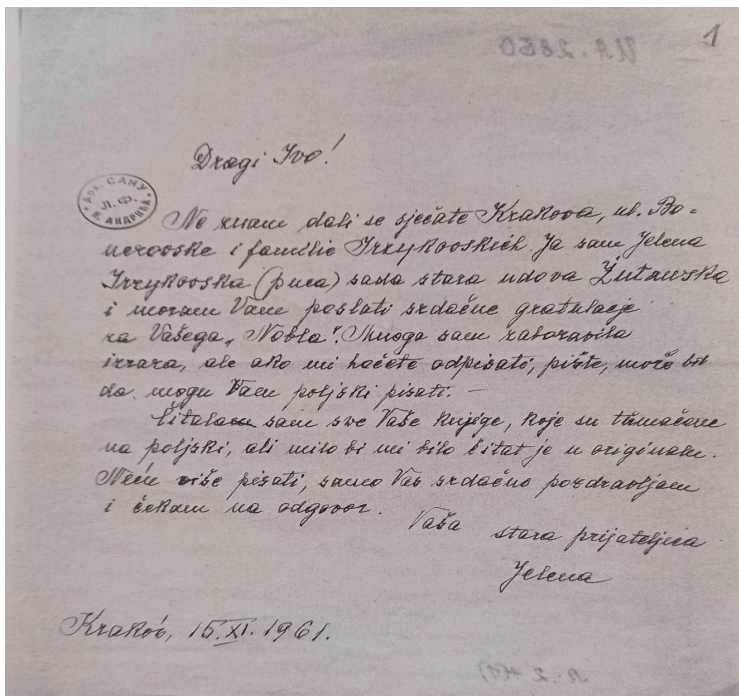 1
Dragi Ivo!
АРХ. САНУ
Л. Ф.
И. АНДРИЋА
Ne znam dali se sjećate Krakova, ul. Bo-
nerovske i familie Irzykovskich. Ja sam Jelena
Irzykovska (puca) sada stara udova Żutawska
i moram Vam poslati srdačne gratulacje
za Vašega „Nobla". Mnoga sam zaboravila
izraza, ale ako mi hoćete odpisati, pište, može bit
da mogu Vam poljski pisati. —
Čitala sam sve Vaše knjige, koje su tłumačene
na poljski, ali milo bi mi bilo čitat je u originalu.
Neću više pisati, samo Vas srdačno pozdravljam
i čekam na odgovor.
Vaša stara prijateljica
Jelena
Kraków, 15.XI.1961.